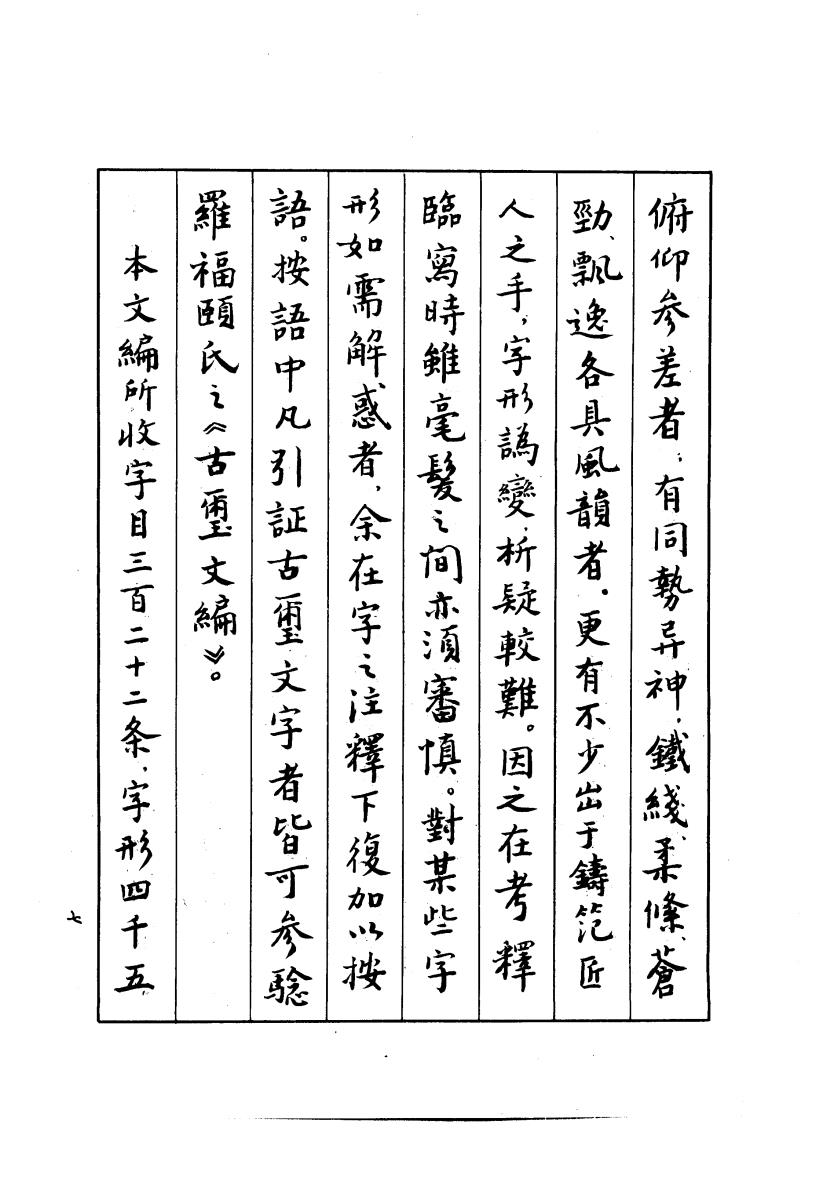 俯仰参差者；有同勢异神，鐵綫、柔條、蒼
勁、飄逸各具風韻者。更有不少出于鑄范匠
人之手，字形譌變，析疑較難。因之在考釋
臨寫時雖毫髮之間亦須審慎。對某些字
形如需解惑者，余在字之注釋下復加以按
語。按語中凡引証古璽文字者皆可参驗
羅福頤氏之《古璽文編》。
本文編所收字目三百二十二条，字形四千五
七